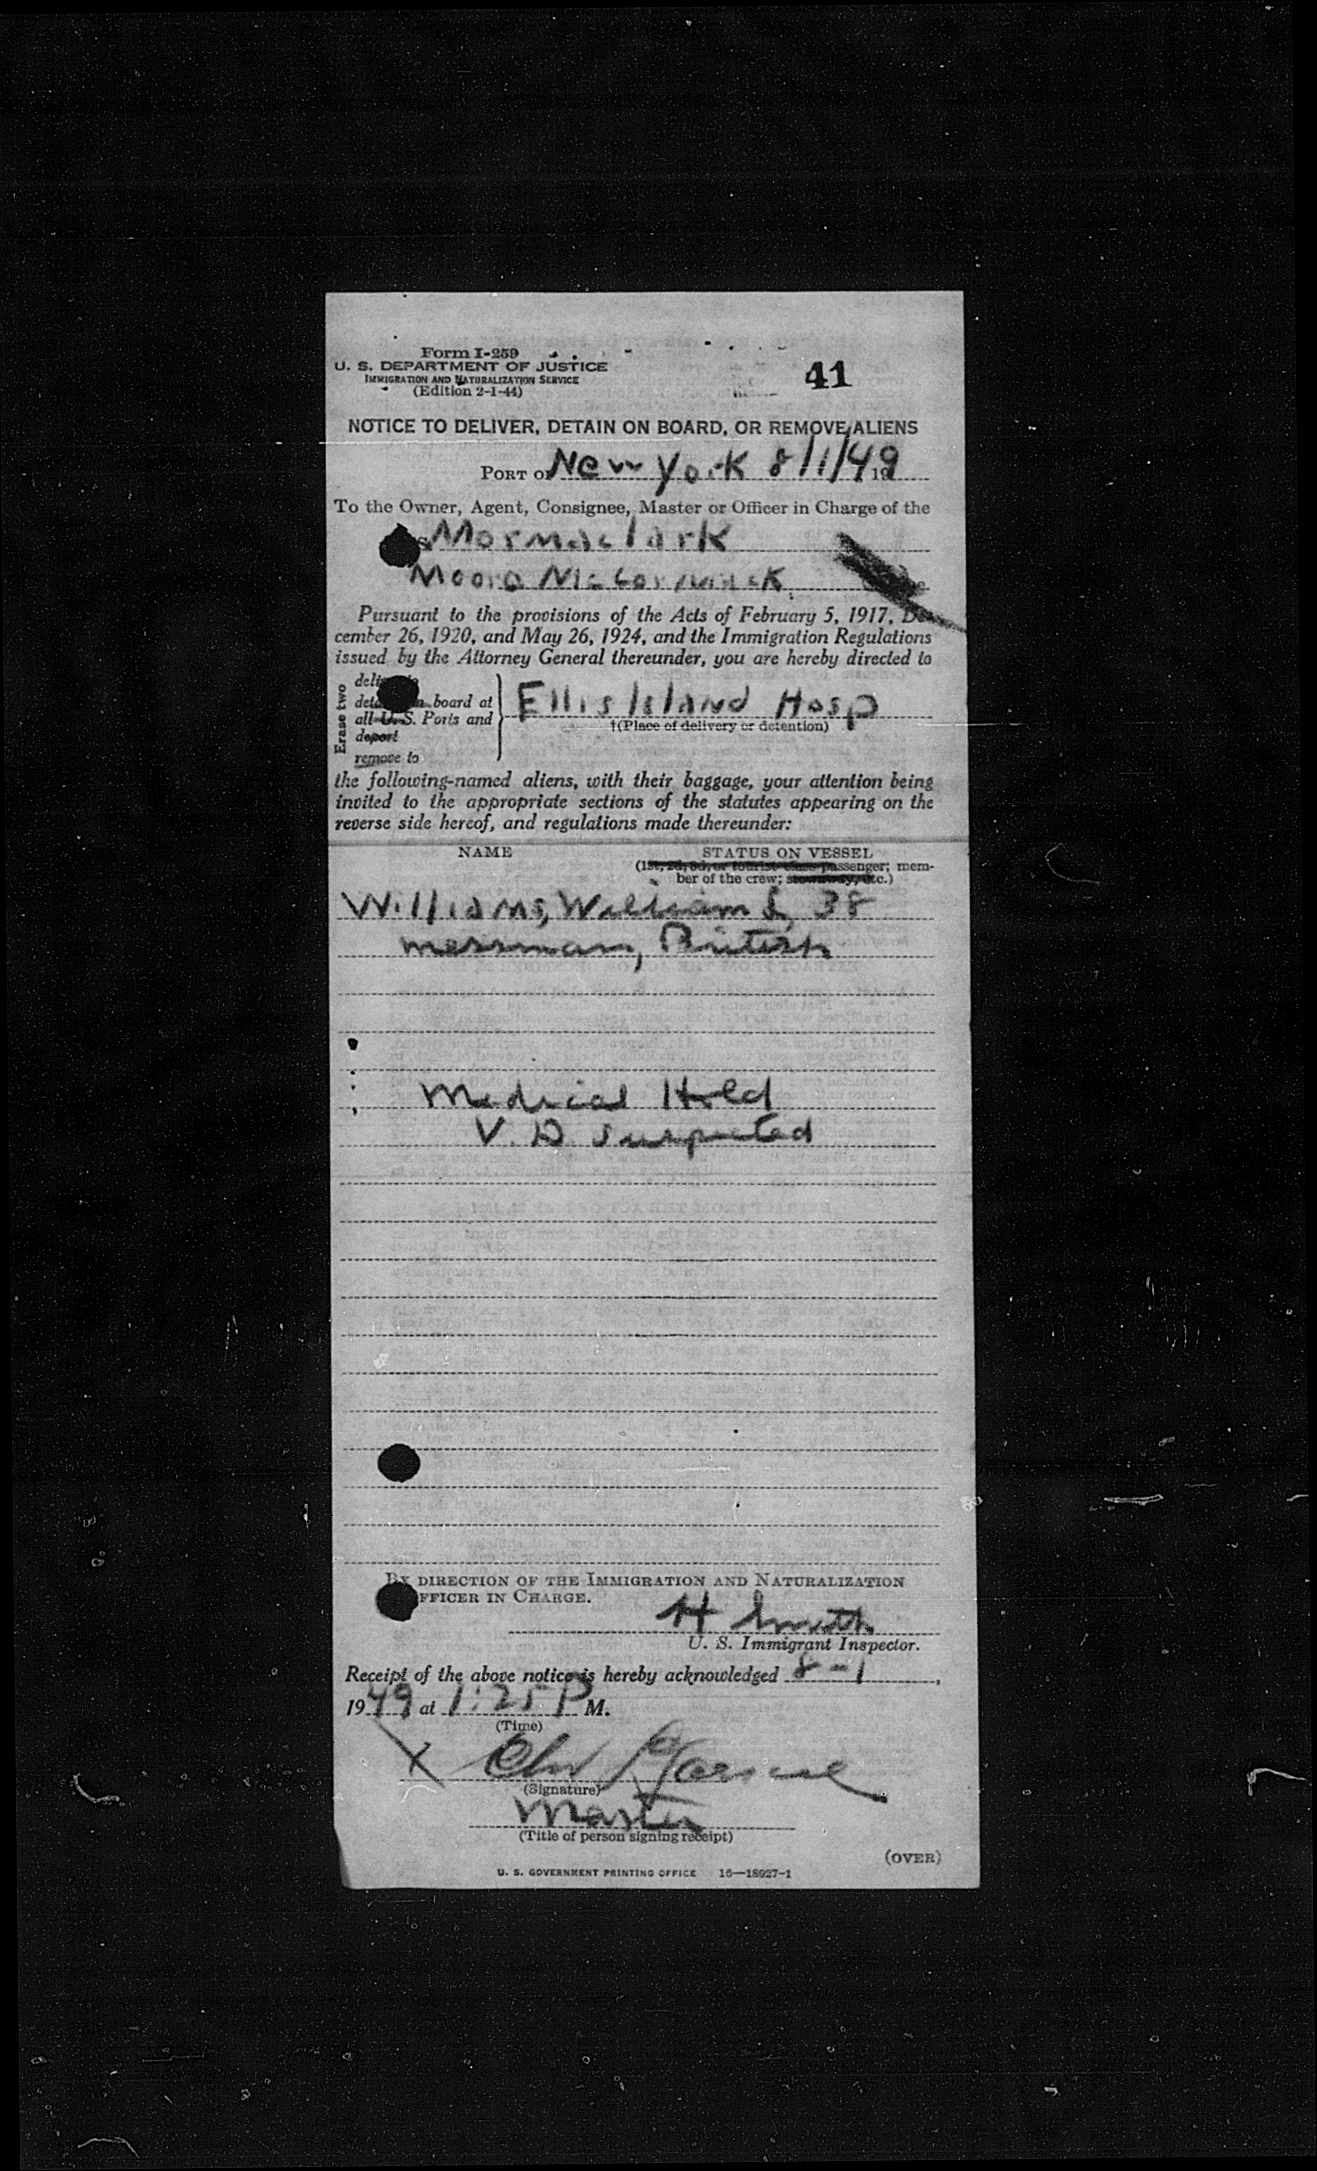 Form I-259
U. S. DEPARTMENT OF JUSTICE
IMMIGRATION AND NATURALIZATION SERVICE
(Edition 2-1-44)
41
NOTICE TO DELIVER, DETAIN ON BOARD, OR REMOVE ALIENS
PORT OF New York 8/1/49 19
To the Owner, Agent, Consignee, Master or Officer in Charge of the
Mormaclark
Moore McCormack
Pursuant to the provisions of the Acts of February 5, 1917, De-
cember 26, 1920, and May 26, 1924, and the Immigration Regulations
issued by the Attorney General thereunder, you are hereby directed to
Erase two
board at
all U. S. Ports and
deport
remove to
Ellis Island Hosp
†(Place of delivery or detention)
the following-named aliens, with their baggage, your attention being
invited to the appropriate sections of the statutes appearing on the
reverse side hereof, and regulations made thereunder:
NAME
STATUS ON VESSEL
(1st, 2d, 3d, or tourist class passenger; mem-
ber of the crew; stowaway, etc.)
Williams, William L, 38
messman, British
Medical Hold
V. D suspected
BY DIRECTION OF THE IMMIGRATION AND NATURALIZATION
OFFICER IN CHARGE.
H Smith
U. S. Immigrant Inspector.
Receipt of the above notice is hereby acknowledged 8-1,
1949 at 1:25 P M.
(Time)
X
(Signature)
Master
(Title of person signing receipt)
(OVER)
U. S. GOVERNMENT PRINTING OFFICE 16—18927-1